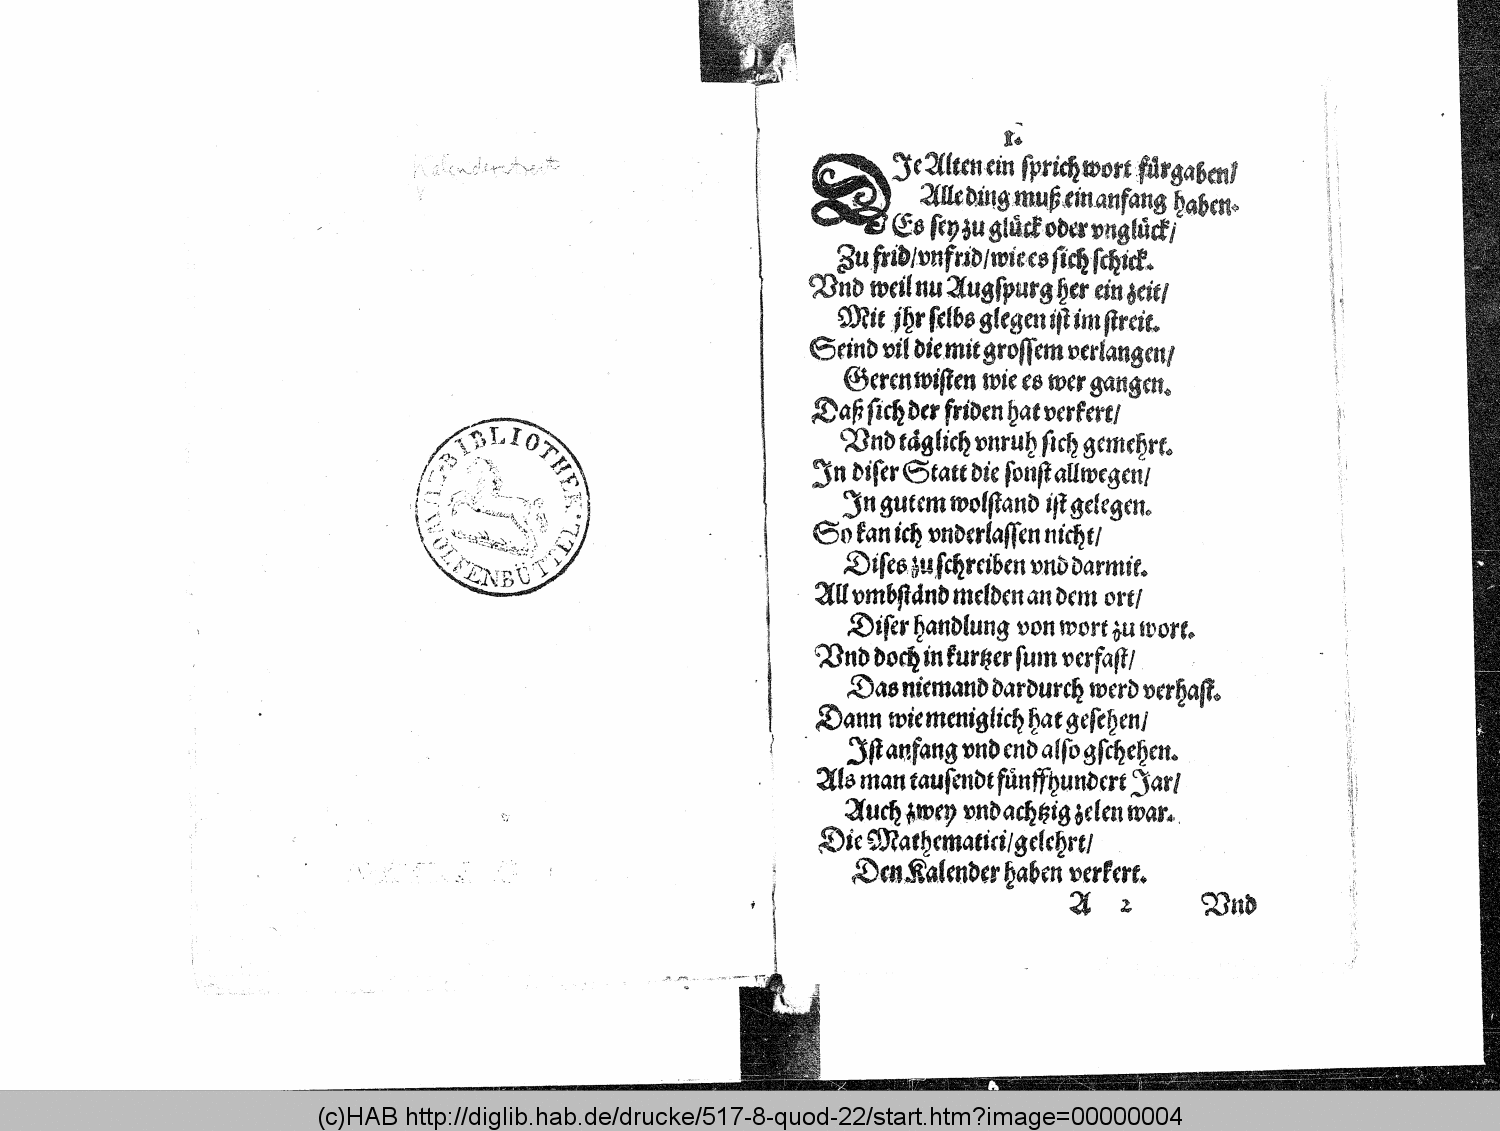 Kalenderstreit
BIBLIOTHEK
WOLFENBÜTTEL
1.
DIe Alten ein sprichwort fürgaben/
Alle ding muß ein anfang haben.
Es sey zu glück oder vnglück/
Zu frid/vnfrid/wie es sich schick.
Vnd weil nu Augspurg her ein zeit/
Mit jhr selbs glegen ist im streit.
Seind vil die mit grossem verlangen/
Geren wisten wie es wer gangen.
Daß sich der friden hat verkert/
Vnd täglich vnruh sich gemehrt.
In diser Statt die sonst allwegen/
In gutem wolstand ist gelegen.
So kan ich vnderlassen nicht/
Dises zu schreiben vnd darmit.
All vmbständ melden an dem ort/
Diser handlung von wort zu wort.
Vnd doch in kurtzer sum verfast/
Das niemand dardurch werd verhast.
Dann wie meniglich hat gesehen/
Ist anfang vnd end also gschehen.
Als man tausendt fünffhundert Jar/
Auch zwey vnd achtzig zelen war.
Die Mathematici/gelehrt/
Den Kalender haben verkert.
A 2 Vnd
(c)HAB http://diglib.hab.de/drucke/517-8-quod-22/start.htm?image=00000004